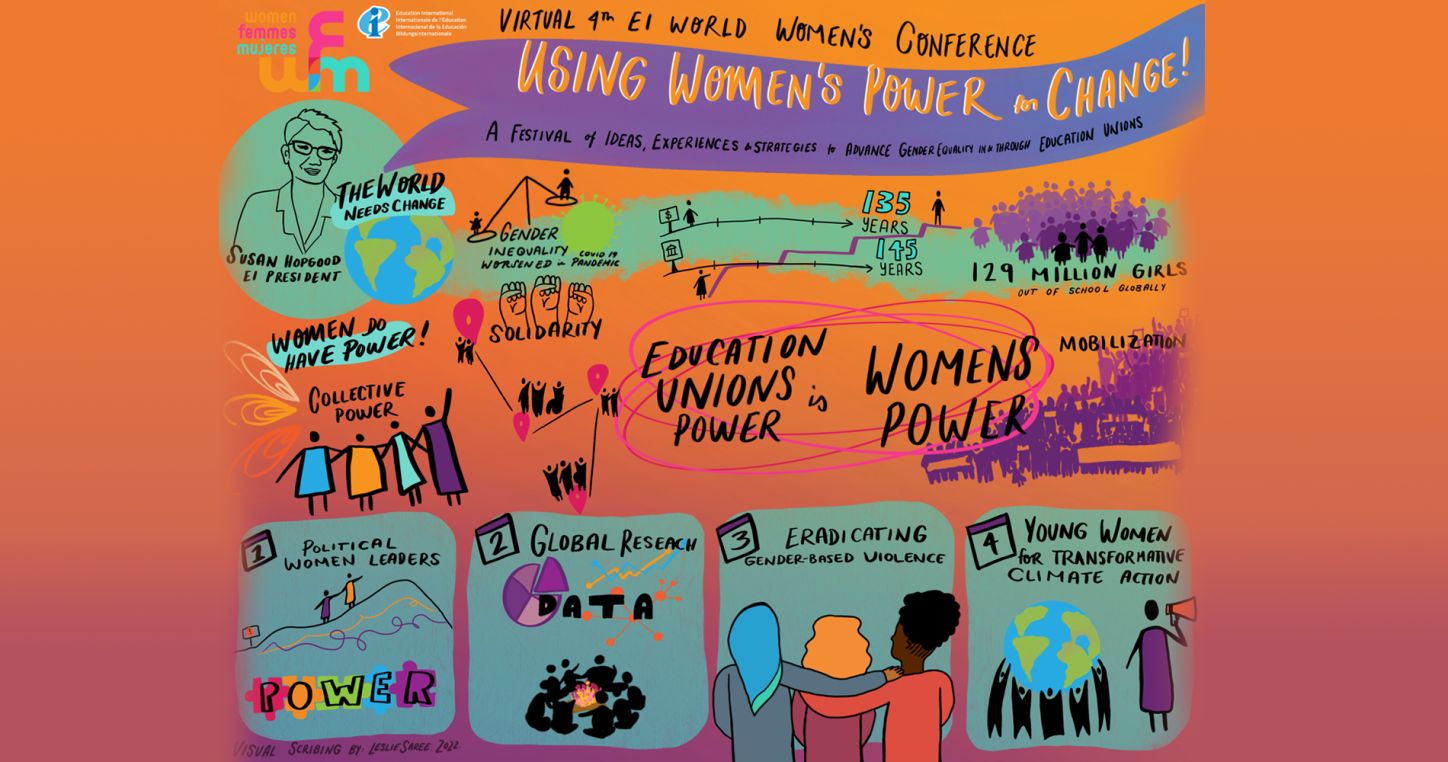 women
femmes
mujeres
wfm
Education International
Internationale de l'Éducation
Internacional de la Educación
Bildungsinternationale
VIRTUAL 4TH EI WORLD WOMEN'S CONFERENCE
USING WOMEN'S POWER for CHANGE!
A FESTIVAL of IDEAS, EXPERIENCES & STRATEGIES to ADVANCE GENDER EQUALITY IN & THROUGH EDUCATION UNIONS
THE WORLD
NEEDS CHANGE
SUSAN HOPGOOD
EI PRESIDENT
GENDER
INEQUALITY
WORSENED in COVID 19
PANDEMIC
$
135
YEARS
145
YEARS
129 MILLION GIRLS
OUT OF SCHOOL GLOBALLY
WOMEN DO
HAVE POWER!
SOLIDARITY
COLLECTIVE
POWER
EDUCATION
UNIONS
POWER
is
WOMENS
POWER
MOBILIZATION
1
POLITICAL
WOMEN LEADERS
POWER
2
GLOBAL RESEACH
DATA
3
ERADICATING
GENDER-BASED VIOLENCE
4
YOUNG WOMEN
for TRANSFORMATIVE
CLIMATE ACTION
VISUAL SCRIBING BY: LESLIE SAREE 2022.